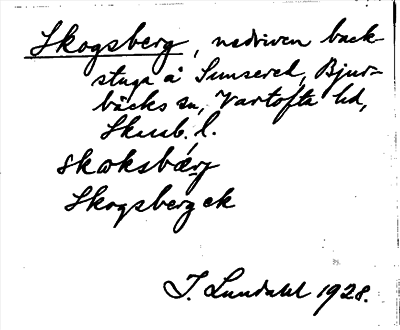 Skogsberg, nedriven back-
stuga å Sunnered, Bjur-
bäcks sn, Vartofta hd,
Skarab. l.
skoksbærj
Skogsbergek
I. Lundahl 1928.